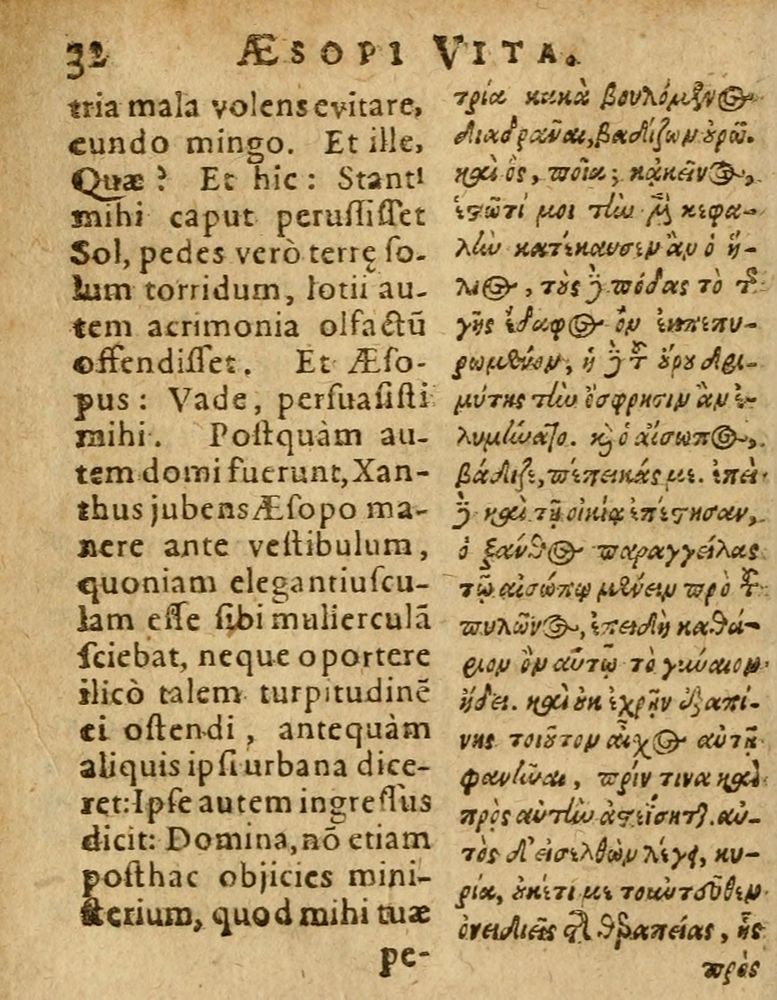 32 ÆSOPI VITA.
tria mala volens evitare,
eundo mingo. Et ille,
Quæ? Et hic: Stanti
mihi caput perussisset
Sol, pedes verò terrę so-
lum torridum, lotii au-
tem acrimonia olfactū
offendisset. Et Æso-
pus: Vade, persuasisti
mihi. Postquàm au-
tem domi fuerunt, Xan-
thus jubens Æsopo ma-
nere ante vestibulum,
quoniam elegantiuscu-
lam esse sibi mulierculā
sciebat, neque oportere
ilicò talem turpitudinē
ei ostendi, antequàm
aliquis ipsi urbana dice-
ret: Ipse autem ingressus
dicit: Domina, nō etiam
posthac objicies mini-
sterium, quod mihi tuæ
pe-
τρία κακὰ βουλόμενος
διαδρᾶναι, βαδίζων οὐρῶ.
καὶ ὃς, ποῖα; κᾀκεῖνος,
ἑστῶτί μοι τὴν μὲν κεφα-
λὴν κατέκαυσεν ἂν ὁ ἥ-
λιος, τοὺς δὲ πόδας τὸ τῆς
γῆς ἔδαφος ὂν ἐμπεπυ-
ρωμένον, ἡ δὲ τοῦ οὔρου δρι-
μύτης τὴν ὄσφρησιν ἂν ἐ-
λυμήνατο. καὶ ὁ αἴσωπος,
βάδιζε, πέπεικάς με. ἐπεὶ
δὲ καὶ τῇ οἰκίᾳ ἐπέστησαν,
ὁ ξάνθος παραγγείλας
τῷ αἰσώπῳ μένειν πρὸ τῶν
πυλῶνος, ἐπειδὴ καθά-
ριον ὂν αὑτῷ τὸ γύναιον
ᾔδει. καὶ οὐκ ἐχρῆν ἐξαπί-
νης τοιοῦτον αἶσχος αὐτῇ
φανῆναι, πρίν τινα καὶ
πρὸς αὐτὴν ἀστεΐσηται. αὐ-
τὸς δ' εἰσελθὼν λέγει, κυ-
ρία, οὐκέτι με τοὐντεῦθεν
ὀνειδιεῖς τῆς θεραπείας, ἧς
πρὸς